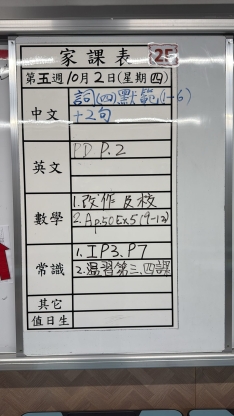 家課表 2E
第五週10月2日(星期四)
中文
詞(四)默範(1-6)
+2句
英文
PD P.2
數學
1.改作及核
2.Ap.50Ex5(9-12)
常識
1.IP3、P7
2.溫習第三、四課
其它
值日生